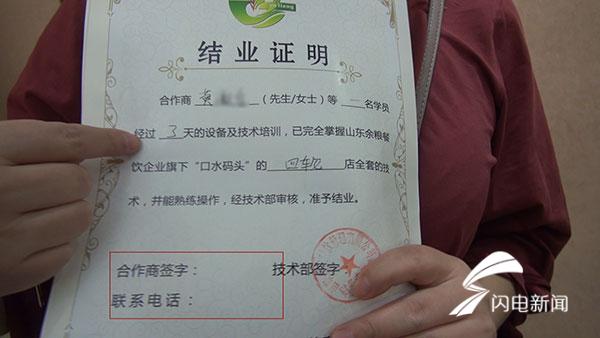 结业证明
合作商 黄 (先生/女士) 等 一 名学员
经过 3 天的设备及技术培训，已完全掌握山东余粮餐
饮企业旗下“口水码头”的 四轮 店全套的技
术，并能熟练操作，经技术部审核，准予结业。
合作商签字： 技术部签字
联系电话：
闪电新闻